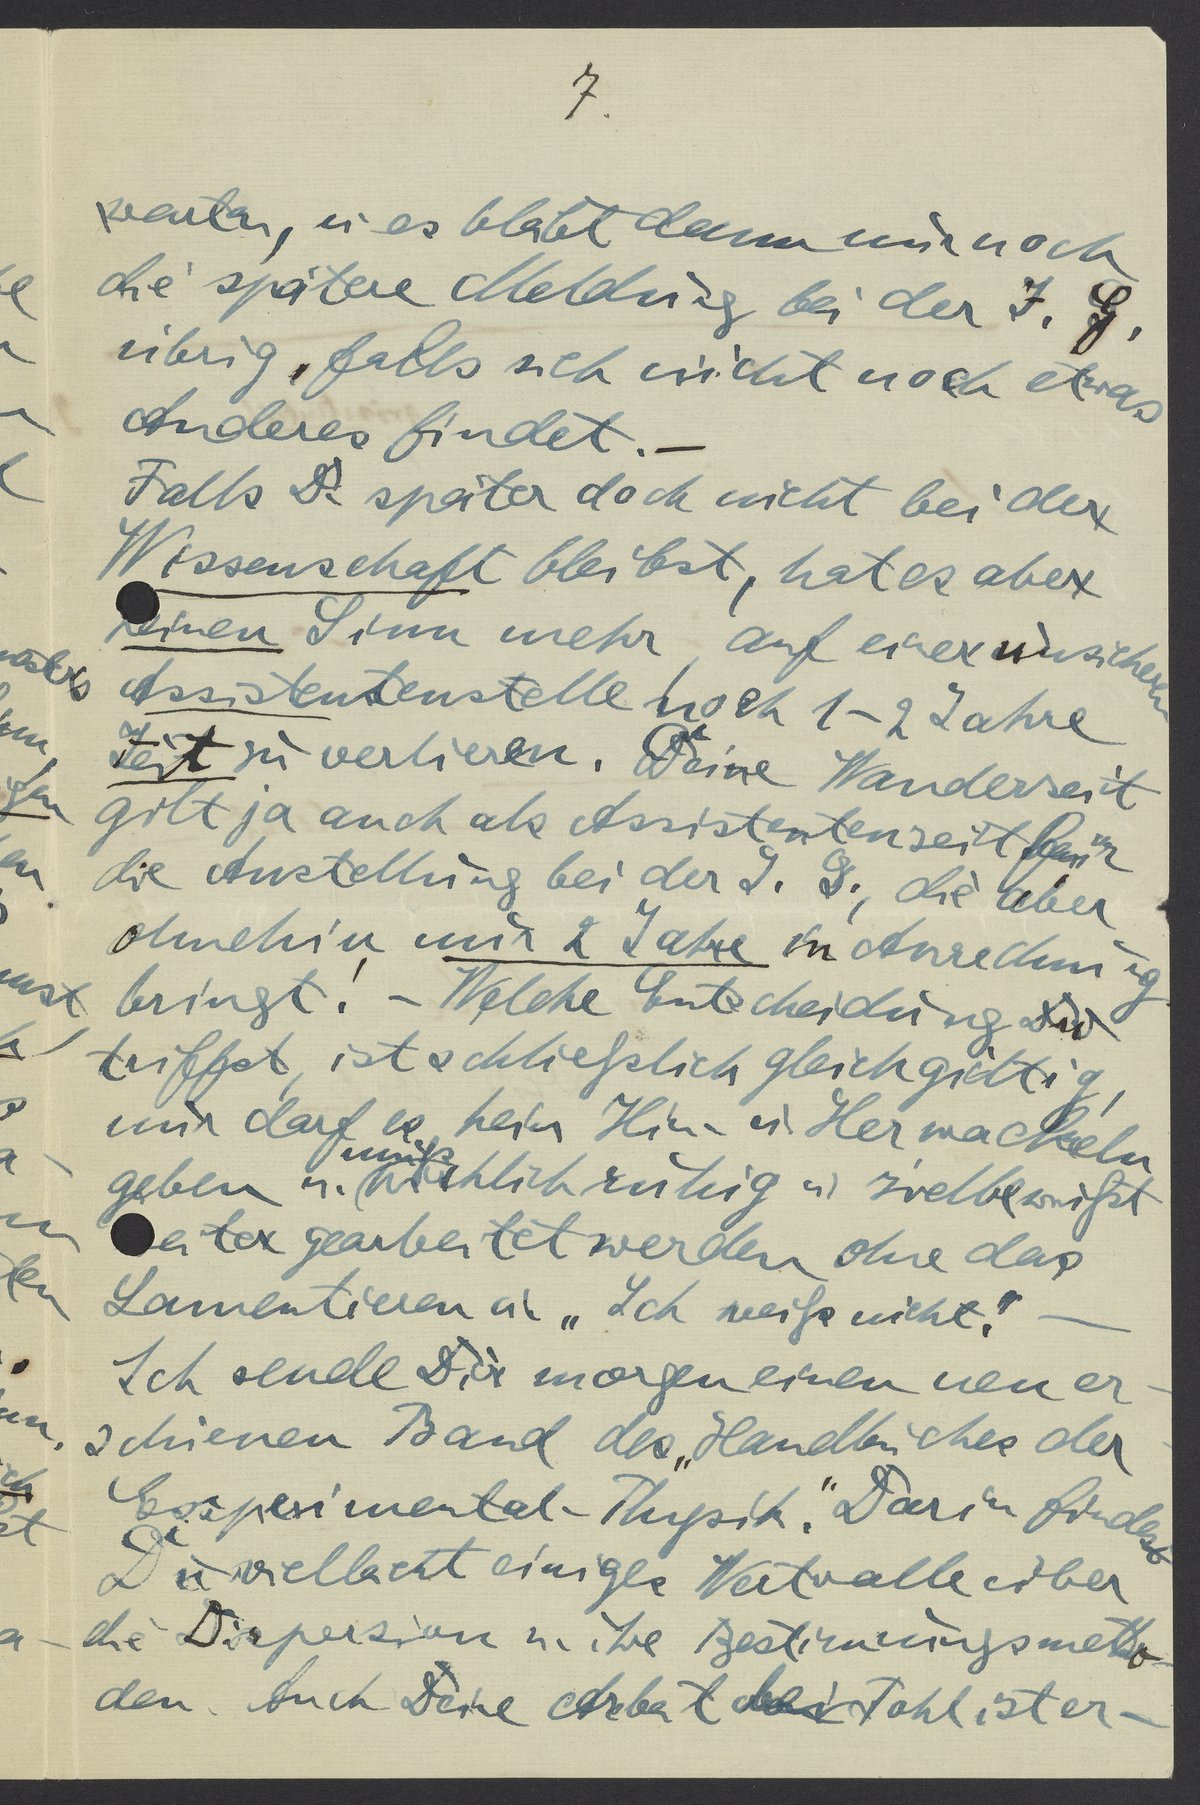 7.
warten, u es bleibt dann nur noch
die spätere Meldung bei der I. G.
übrig, falls sich nicht noch etwas
Anderes findet. —
Falls Du später doch nicht bei der
Wissenschaft bleibst, hat es aber
keinen Sinn mehr, auf einer unsicheren
Assistentenstelle noch 1-2 Jahre
Zeit zu verlieren. Deine Wanderzeit
gilt ja auch als Assistentenzeit für
die Anstellung bei der I. G., die aber
ohnehin nur 2 Jahre in Anrechnung
bringt! - Welche Entscheidung Du
triffst, ist schließlich gleichgültig,
nur darf es kein Hin- u Herwackeln
geben u. muß wirklich ruhig u zielbewußt
weiter gearbeitet werden ohne das
Lamentieren u. „Ich weiß nicht!" —
Ich sende Dir morgen einen neu er-
schienen Band des „Handbuches der
Experimental-Physik." Darin findest
Du vielleicht einiges Wertvolle über
die Dispersion u. ihre Bestimmungsmetho-
den. Auch Deine Arbeit bei Pohl ist er-